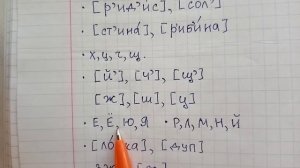 · [р'ид'ис], [сол'
· [ст'ина́], [р'иб'и́на]
· х, ц, ч, щ.
· [й'], [ч'], [щ']
[ж], [ш], [ц]
· Е, Ё, Ю, Я · Р, Л, М, Н, Й
· [ло́тка], [дуп]